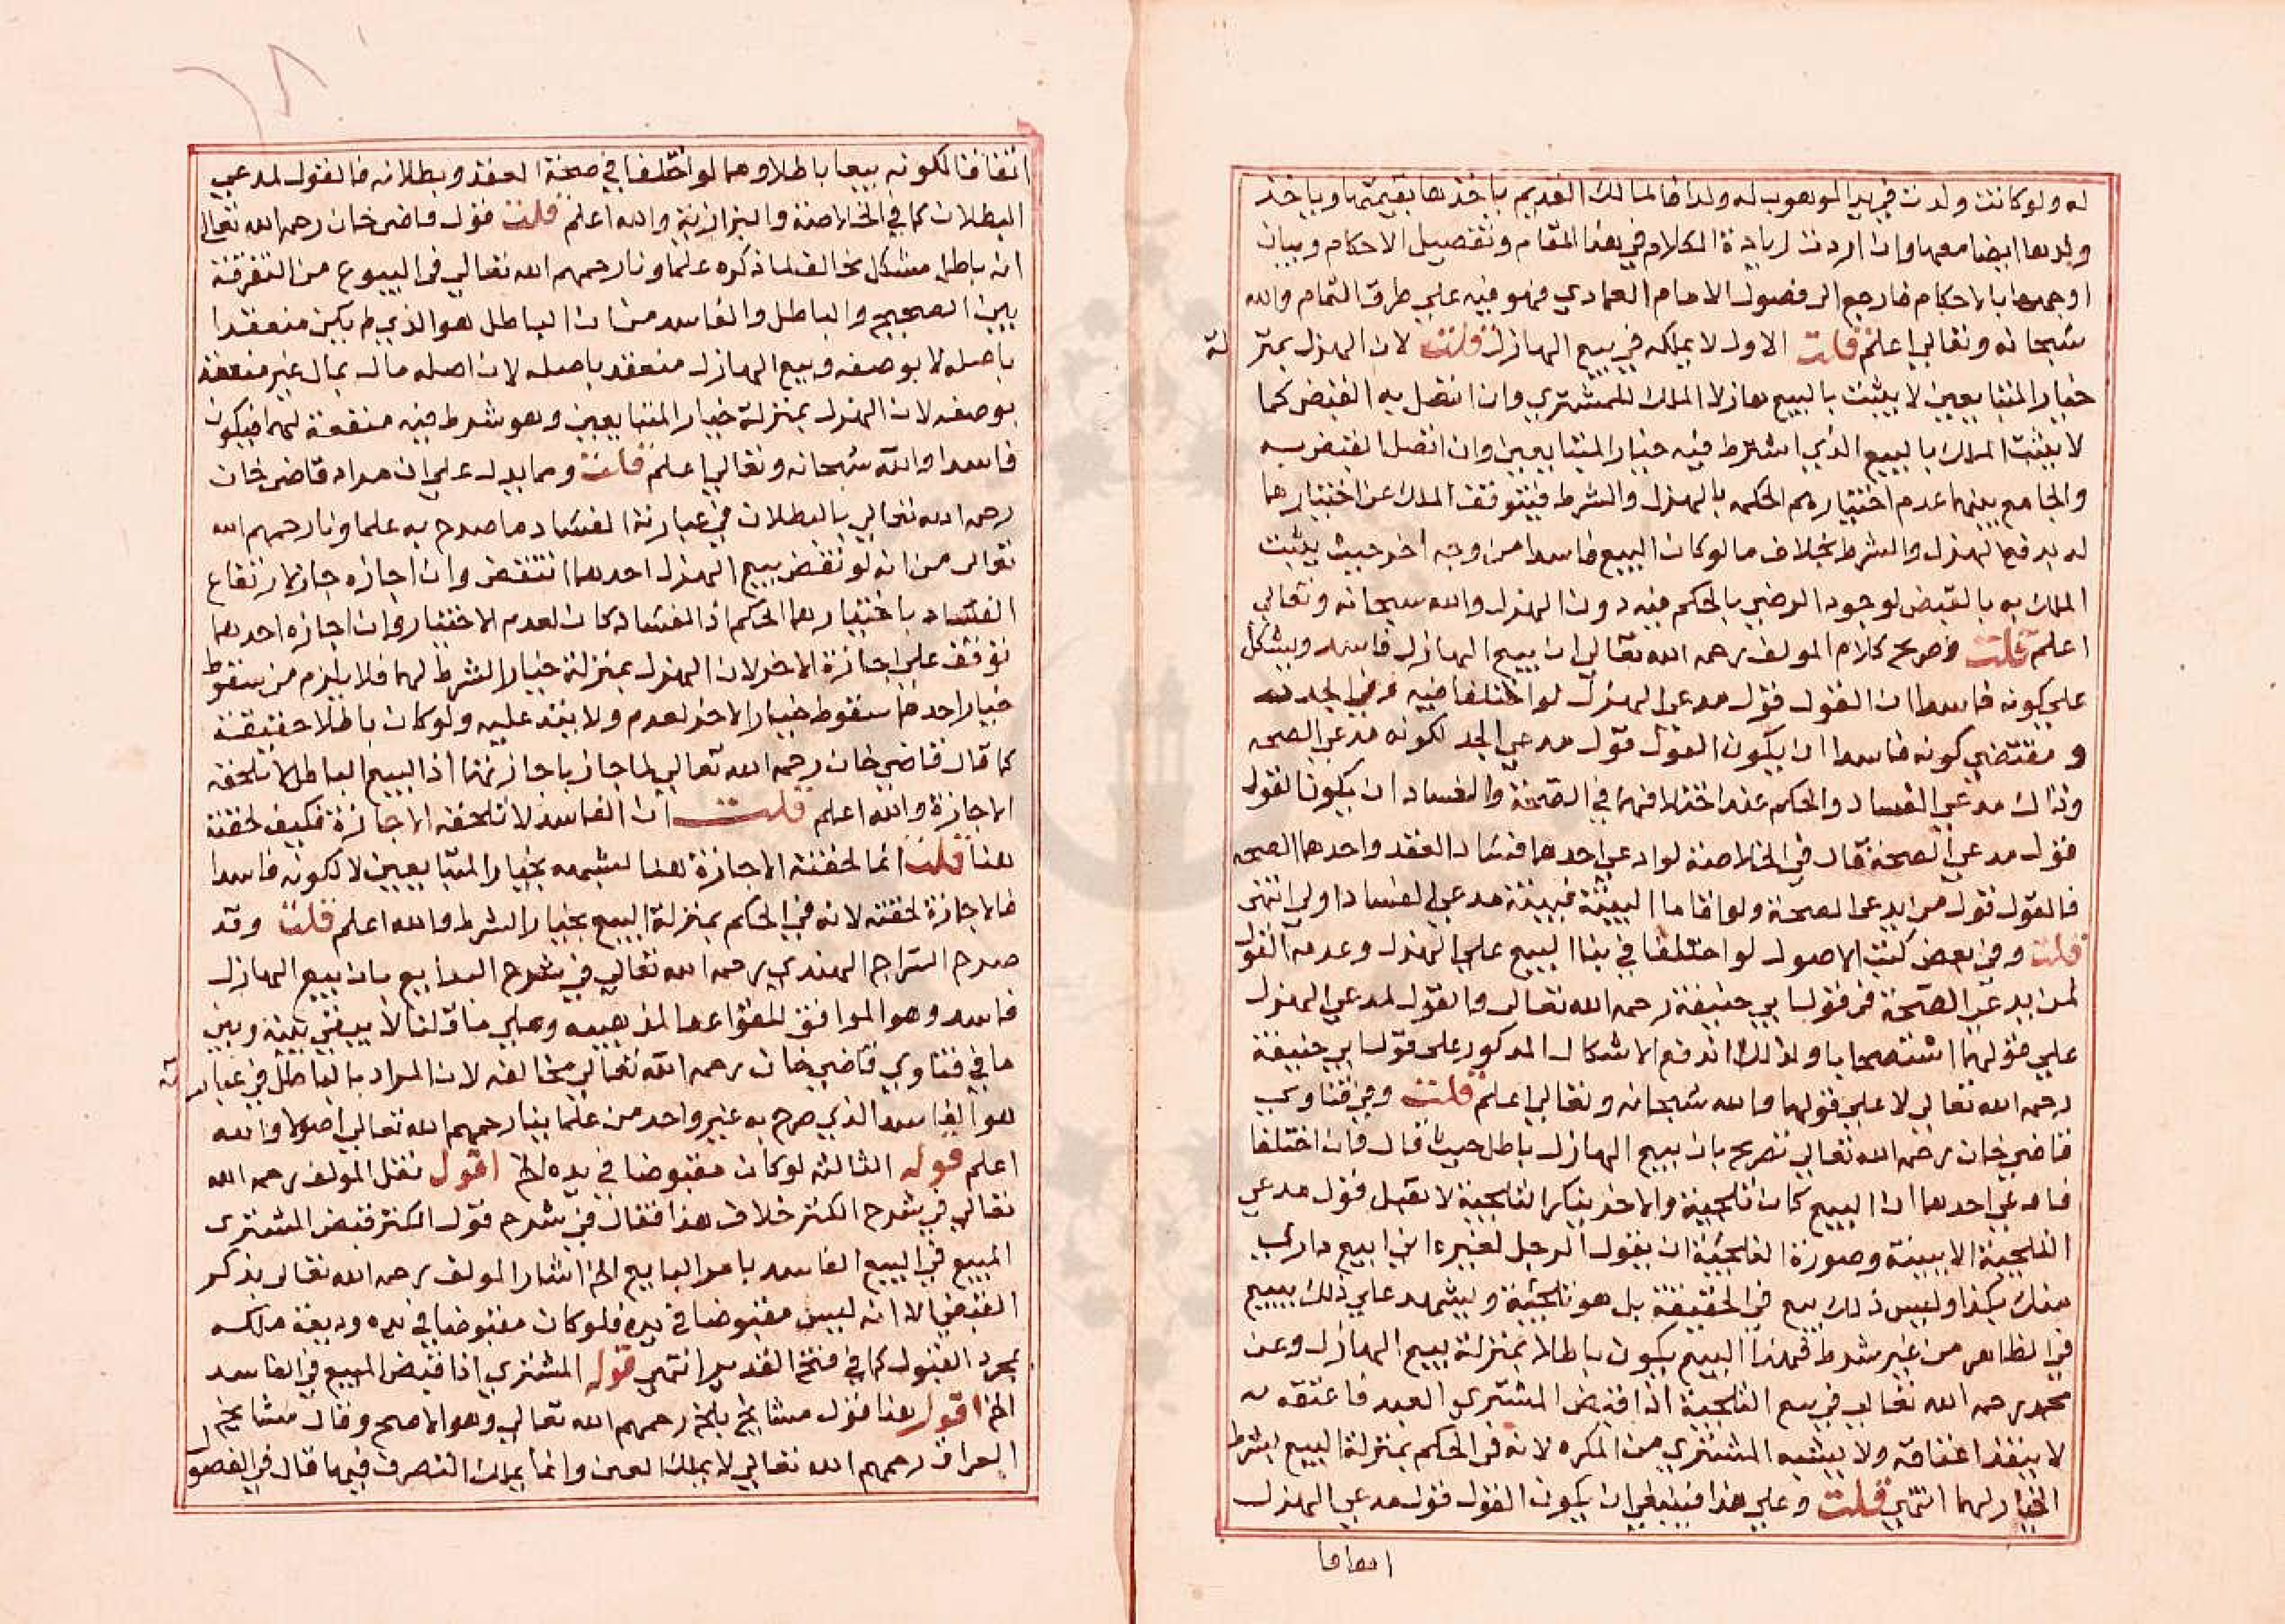 له ولو كانت ولدت في يد الموهوب له ولدا فالمالك القديم ياخذها بقيمتها وياخذ
ولدها ايضا معها وان اردت زيادة الكلام في هذا المقام وتفصيل الاحكام وبيان
اوجهها بالاحكام فارجع الى فصول الامام العمادي فهو فيه على طرف التمام والله
سبحانه وتعالى اعلم قلت الاول لا يملكه في بيع الهازل قلت لان الهزل بمنزلة
خيار المتبايعين لا يثبت بالبيع هازلا الملك للمشتري وان اتصل به القبض كما
لا يثبت الملك بالبيع الذي اشترط فيه خيار المتبايعين وان اتصل القبض به
والجامع بينهما عدم اختيارهم الحكم بالهزل والشرط فيتوقف الملك عن اختيارهما
له بدفع الهزل والشرط بخلاف ما لو كان البيع فاسدا من وجه اخر حيث يثبت
الملك به بالقبض لوجود الرضى بالحكم فيه دون الهزل والله سبحانه وتعالى
اعلم قلت وصريح كلام المولف رحمه الله تعالى ان بيع الهازل فاسد ويشكل
على كونه فاسدا ان القول قول مدعي الهزل لو اختلفا فيه وفي الجد
ومقتضى كونه فاسدا ان يكون القول قول مدعي الجد لكونه مدعي الصحه
وذاك مدعي الفساد والحكم عند اختلافهما في الصحة والفساد ان يكون القول
قول مدعي الصحة قال في الخلاصة لو ادعى احدهما فساد العقد واحدهما الصحه
فالقول قول من ايدعى الصحة ولو اقاما البينة فبينة مدعي الفساد اولى انتهى
قلت وفي بعض كتب الاصول لو اختلفا في بنا البيع على الهزل وعدمه القول
لمن يدعي الصحة في قول ابي حنيفة رحمه الله تعالى والقول لمدعي الهزل
على قولهما استصحابا ولذلك اندفع الاشكال المذكور على قول ابي حنيفة
رحمه الله تعالى لا على قولهما والله سبحانه وتعالى اعلم قلت وفي فتاوي
قاضي خان رحمه الله تعالى تصريح بان بيع الهازل باطل حيث قال فان اختلفا
فادعى احدهما ان البيع كان تلجية والاخر ينكر التلجية لا يقبل قول مدعي
التلجية الا ببينة وصورة التلجية ان يقول الرجل لغيره اني ابيع داري
منك بكذا وليس ذلك بيع في الحقيقة بل هو تلجية ويشهد على ذلك ببيع
في الظاهر من غير شرط فهذا البيع يكون باطلا بمنزلة بيع الهازل وعن
محمد رحمه الله تعالى في بيع التلجية اذا قبض المشتري العبد فاعتقه
لا ينفذ اعتاقه ولا يشبه المشتري من المكره لانه في الحكم بمنزلة البيع بشرط
الخيار لهما انتهى قلت وعلى هذا فينبغي ان يكون القول قول مدعي الهزل
اتفاقا
اتفاقا لكونه بيعا باطلا وهما لو اختلفا في صحة العقد وبطلانه فالقول لمدعي
البطلان كما في الخلاصة والبزازية والله اعلم قلت قول قاضي خان رحمه الله تعالى
انه باطل مشكل مخالف لما ذكره علماونا رحمهم الله تعالى في البيوع من التفرقة
بين الصحيح والباطل والفاسد من ان الباطل هو الذي لم يكن منعقدا
باصله لا بوصفه وبيع الهازل منعقد باصله لان اصله مال بمال غير منعقد
بوصفه لان الهزل بمنزلة خيار المتبايعين وهو شرط فيه منفعة لهما فيكون
فاسدا والله سبحانه وتعالى اعلم قلت ومما يدل على ان مراد قاضي خان
رحمه الله تعالى بالبطلان في عبارته الفساد ما صرح به علماونا رحمهم الله
تعالى من انه لو نقض بيع الهزل احدهما انتقض وان اجازه جاز لارتفاع
الفساد باختيارهما الحكم اذ الفساد كان لعدم الاختيار وان اجازه احدهما
توقف على اجازة الاخر لان الهزل بمنزلة خيار الشرط لهما فلا يلزم من سقوط
خيار احدهما سقوط خيار الاخر لعدم ولايته عليه ولو كان باطلا حقيقة
كما قال قاضي خان رحمه الله تعالى لما جاز باجازتهما اذ البيع الباطل لا تلحقه
الاجازة والله اعلم قلت ان الفاسد لا تلحقه الاجازة فكيف لحقته
هنا قلت انما لحقته الاجازة هنا لشبهه بخيار المتبايعين لا لكونه فاسدا
فالاجازة لحقته لانه في الحكم بمنزلة البيع بخيار الشرط والله اعلم قلت وقد
صرح السراج الهندي رحمه الله تعالى في شرح البدايع بان بيع الهازل
فاسد وهو الموافق للقواعد المذهبيه وعلى ما قلنا لا يبقى بينه وبين
ما في فتاوي قاضي خان رحمه الله تعالى مخالفه لان المراد بالباطل في عبارته
هو الفاسد الذي صرح به غير واحد من علماينا رحمهم الله تعالى اصولا والله
اعلم قوله الثالثه لو كان مقبوضا في يده الخ اقول نقل المولف رحمه الله
تعالى في شرح الكنز خلاف هذا فقال في شرح قول الكنز قبض المشترى
المبيع في البيع الفاسد بامر البايع الخ اشار المولف رحمه الله تعالى بذكر
القبض الا انه ليس مقبوضا في يده فلو كان مقبوضا في يده وديعة ملكه
بمجرد القبول كما في فتح القدير انتهى قوله المشتري اذا قبض المبيع في الفاسد
الخ اقول هذا قول مشايخ بلخ رحمهم الله تعالى وهو الاصح وقال مشايخ
العراق رحمهم الله تعالى لا يملك العين وانما يملك التصرف فيها قال في الفصول